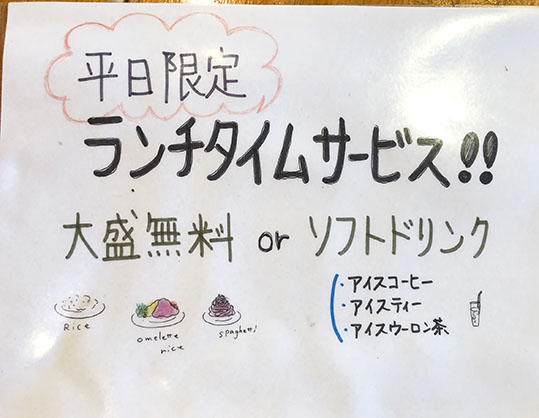 平日限定
ランチタイムサービス!!
大盛無料 or ソフトドリンク
・アイスコーヒー
・アイスティー
・アイスウーロン茶
Rice
omelette rice
spaghetti